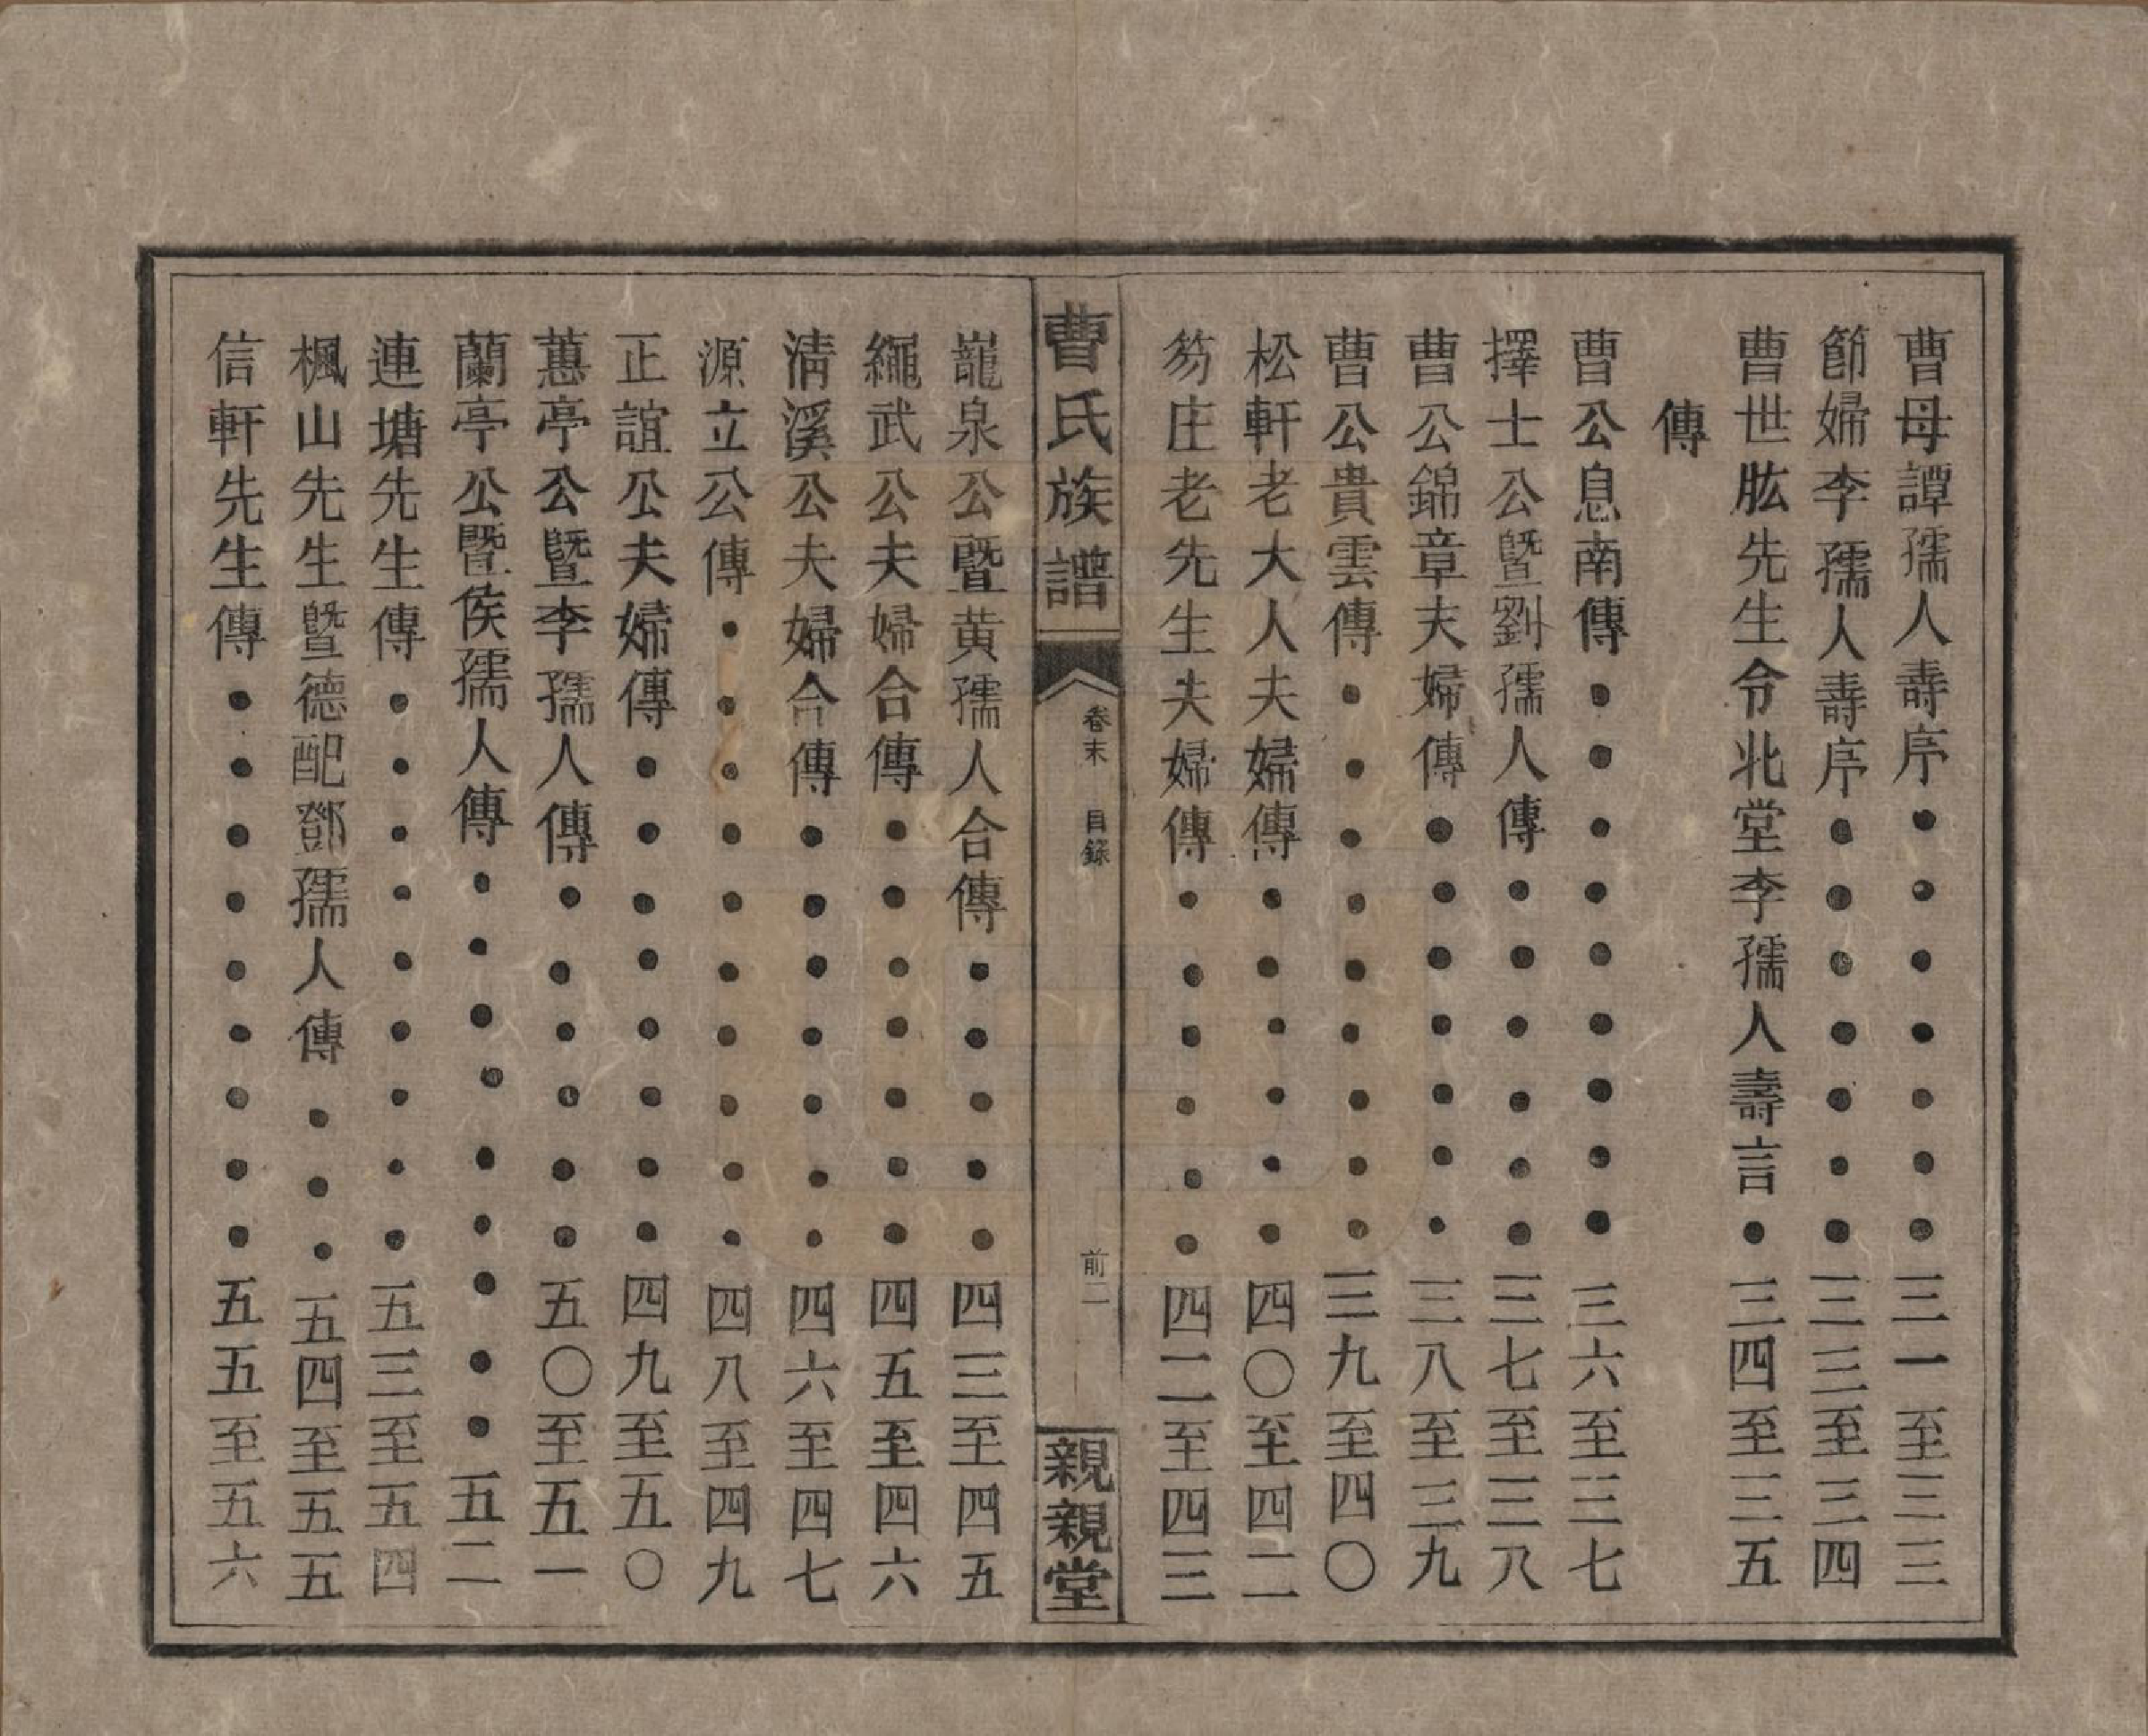 曹母譚孺人壽序●●●●●●●三一至三三
節婦李孺人壽序●●●●●●●三三至三四
曹世肱先生令北堂李孺人壽言●三四至三五
傳
曹公息南傳●●●●●●●●●三六至三七
擇士公暨劉孺人傳●●●●●●三七至三八
曹公錦章夫婦傳●●●●●●●三八至三九
曹公貴雲傳●●●●●●●●●三九至四〇
松軒老大人夫婦傳●●●●●●四〇至四二
芴庄老先生夫婦傳●●●●●●四二至四三
曹氏族譜
卷末 目錄
前二
親親堂
巃泉公暨黃孺人合傳●●●●●四三至四五
繩武公夫婦合傳●●●●●●●四五至四六
清溪公夫婦合傳●●●●●●●四六至四七
源立公傳●●●●●●●●●●四八至四九
正誼公夫婦傳●●●●●●●●四九至五〇
蕙亭公暨李孺人傳●●●●●●五〇至五一
蘭亭公暨侯孺人傳●●●●●●●●●五二
連塘先生傳●●●●●●●●●五三至五四
楓山先生暨德配鄧孺人傳●●●五四至五五
信軒先生傳●●●●●●●●●五五至五六